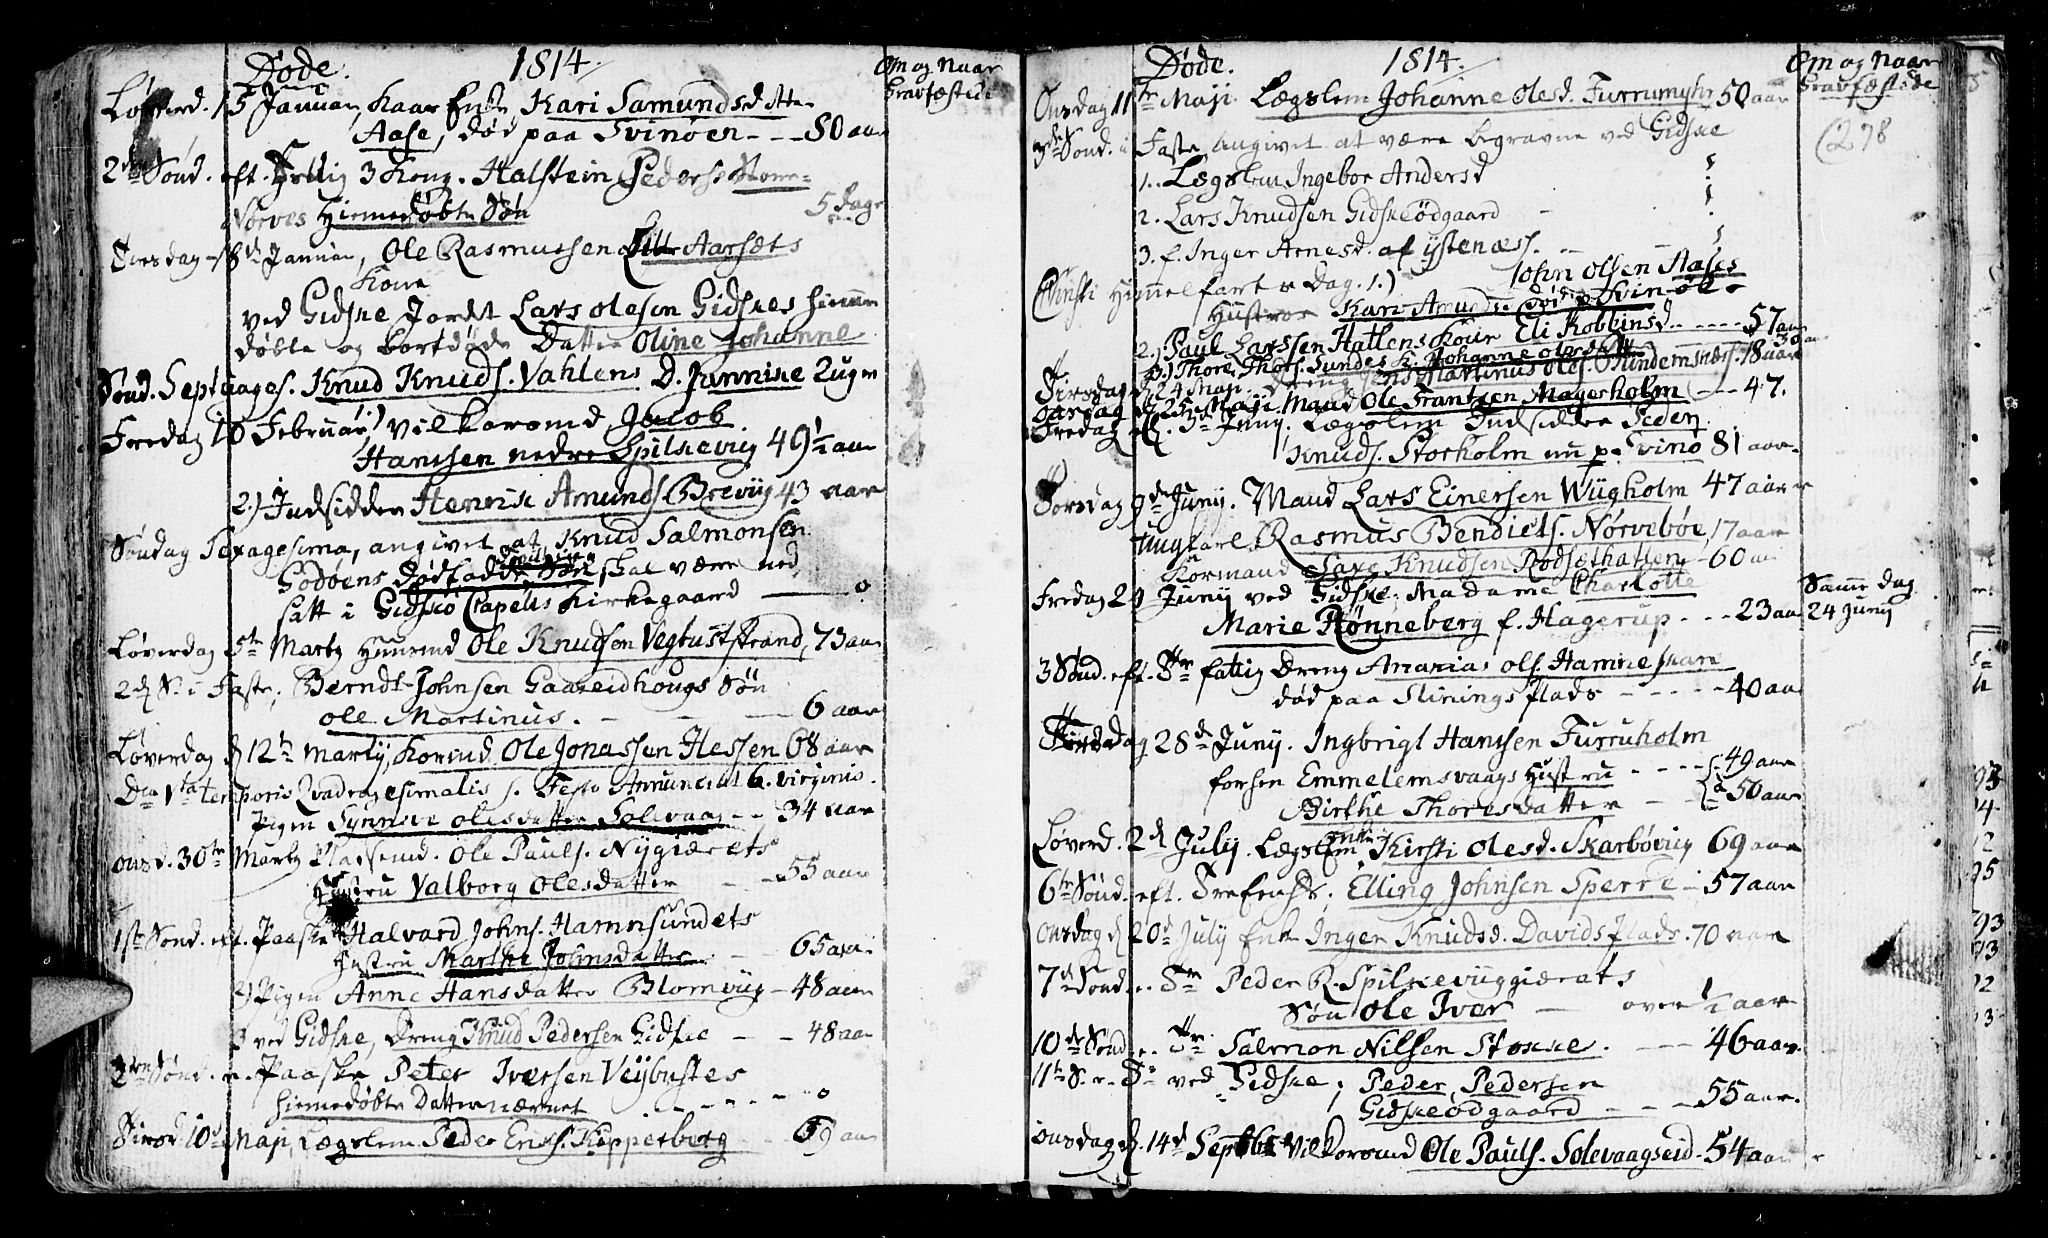 Døde. 1814. Om og Naar
Gravfæstede
Løverd. 15 Januar, Kaar Enke Kari Samundsdatter
Aase, død paa Svinøen - - 80 aar
2den Sønd. eft. Hellig 3 Kong. Halstein Peders
Nørves Hiemedøbte Søn 5 dage
Tirsdag 18de Januar, Ole Rasmussen Aarsæts
Kone
ved Gidske Jordt Lars Olesen Gidskes hieme
døbte og bortdøde Datter Oline Johanne
Sønd. Septuages. Knud Knuds. Vahlens D. Jannike 2 uger
Fredag 10 Februar 1.) Vilkorsmd Jacob
Hanssen nedre Spilkevig 49 1/2 aar
2.) Indsidder Henrik Amunds. Brevig 43 aar
Søndag Sexagesima, angivet at Knud Salmonsen
Godøens dødfødde Søn skal være ned
satt i Gidskø Capells Kirkegaard - o
Løverdag 5te Marty Huusmd Ole Knudsen Vegbuststrand, 73 aar
2d S. i Faste, Berndt Johnsen Gaaseidhougs Søn
Ole Martinus. - - - 6 aar
Løverdag d 12te Marty, Kormd. Ole Jonassen Hessen 68 aar
Den 1ta temporis Qvadragesimalis s. Festo Annunciat. B. Virginis.
Pigen Synneve Olesdatter Solevaag - - 34 aar
Onsd. 30te Marty Pladsemd. Ole Pauls. Nygiærets
Hustru Valborg Olesdatter - - 55 aar
1ste Sønd. eft. Paaske Halvard Johns. Hamnsundets
Hustru Marthe Johnsdatter - - 65 aar
2) Pigen Anne Hansdatter Blomvig - 48 aar
3 ved Gidske, Dreng Knud Pedersen Gidske - - 48 aar
2den Sønd. e. Paaske Peter Iversen Veybustes
hiemedøbte Datter nævnet - - - o
Tirsd 10de Maji, Lægslem Peder Eriks. Kopperberg - 69 aar
Døde. 1814. Om og Naar
Gravfæstede
Onsdag 11te Maji. Lægslem Johanne Olesd. Furrumyhr 50 aar
278
3de Sønd. i Faste angivet at være begravne ved Gidske
1. Lægslem Ingebor Andersd
2. Lars Knudsen Gidskeødgaard -
3. f. Inger Arnesd. af Ystenæss. - -
Christi Himmelfarts Dag. 1.) John Olsen Aases
Hustroe Kari Amundsd. død p. Svinøe
2.) Paul Larssen Hatlens Kone Eli Robbinsd. - - - 57 aar
3.) Thore Thors. Sundes K. Johanne Olesdatter 30 aar
Tirsdag d. 24 Maji. Dreng Jens Martinus Oles. 18 aar
Onsdag d. 25 Maji. Mand Ole Frantzen Magerholm - 47.
Fredag d. 3de Juny. Lægslem Indsidder Peder
Knuds. Storholm nu p. Svinø 81 aar
Torsdag 9de Juny. Mand Lars Einersen Wiigholm 47 aar
Ungkarl Rasmus Bendicts. Nørvebøe, 17 aar
Kormand Saxe Knudsen Rødsethatten - 60 aar
Fredag 24 Juny ved Gidske; Madame Charlotte Samme dag
Marie Rønneberg f. Hagerup - - - 23 aar 24 Juny
3 Sønd. eft. Tr fattig Dreng Ananias Ols. Hamneskare
død paa Slinings Plads - - - 40 aar
Tirsdag 28de Juny. Ingbrigt Hanssen Furruholm
forhen Emmelemsvaags Hustru - - - 49 aar
Birthe Thoresdatter - 50 aar
Løverd. 2d July. Lægslem Enke Kirsti Olesd. Skarbøvig 69 aar
6te Sønd. eft. Trefoldt; Elling Johnsen Sperre - 57 aar
Onsdag d. 20de July Enke Inger Knudsd. Davids Plads. 70 aar
7de Sønd. e. Tr Peder R. Spilkeviiggiærats
Søn Ole Iver - over 1/2 aar
10de Sønd. e. Tr. Salmon Nilsen Stokke. - - 46 aar.
11te S. e. Tr ved Gidske; Peder Pedersen
Gidskeødgaard - - - 55 aar.
Onsdag d. 14d Septbr Vilkorsmd Ole Pauls. Solevaagseid - 54 aar